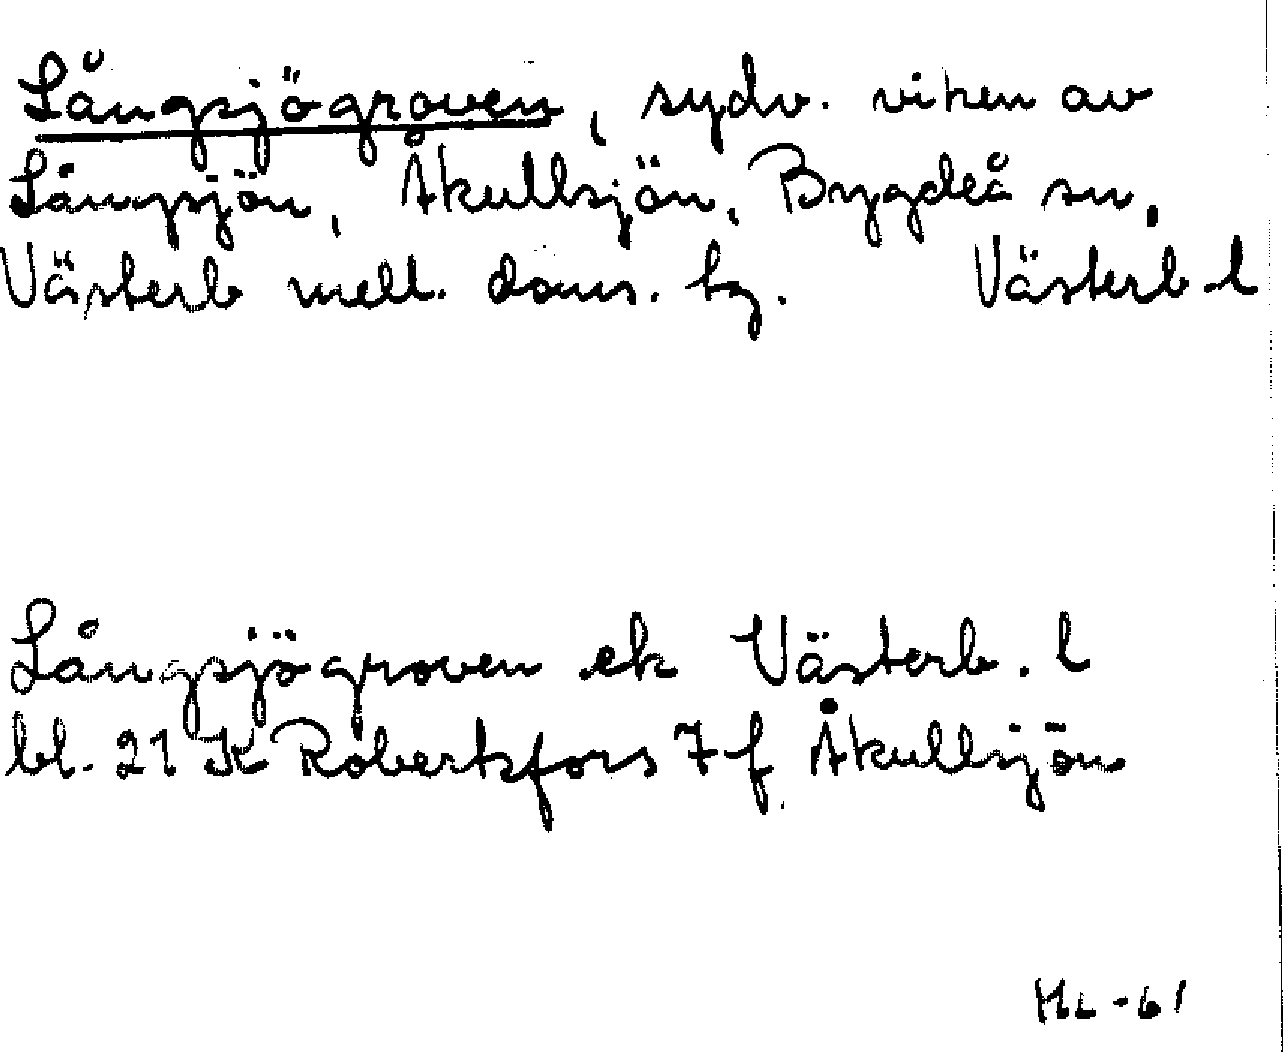 Långsjögroven, sydv. viken av
Långsjön, Åkullsjön, Bygdeå sn,
Västerb mell. doms. tg. Västerb. l
Långsjögroven ek Västerb. l
bl. 21 K Robertsfors 7 f Åkullsjön
HL -61